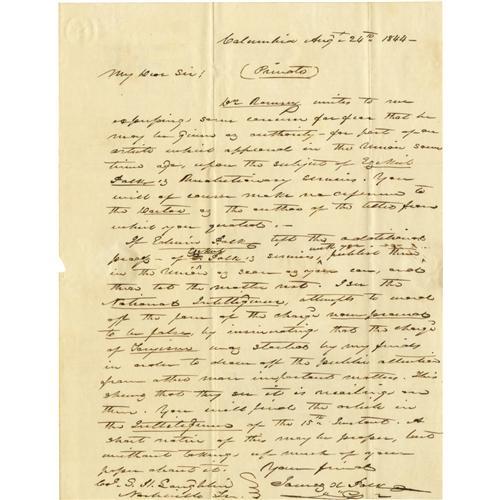 Columbia Augt 24th 1844-
My Dear Sir! (Private)
Dr Ramsey writes to me
expressing some concern for fear that he
may be given as authority for part of an
article which appeared in the Union some
time ago, upon the subject of Ezekiel
Polk's Revolutionary services. You
will of course make no reference to
the Doctor as the author of the letter from
which you quoted.-
If Edwin Polk left the additional
proofs of E. Polk's services with you publish them
in the Union as soon as you can, and
then let the matter rest. I see the
National Intelligencer, attempts to ward
off the force of the charge now proved
to be false, by insinuating that the charge
of Toryism was started by my friends
in order to draw off the public attention
from other more important matters. This
shows that they see it is recoiling on
them. You will find the article in
the Intelligencer of the 15th Instant. A
short notice of this may be proper, but
without taking up much of your
paper about it. Your friend
Col. S. H. Laughlin James K. Polk
Nashville Ten.